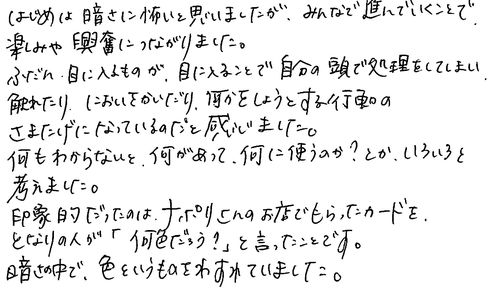 はじめは暗さに怖いと思いましたが、みんなで進んでいくことで、
楽しみや興奮につながりました。
ふだん、目に入るものが、目に入ることで自分の頭で処理をしてしまい、
触れたり、においをかいだり、何かをしようとする行動の
さまたげになっているのだと感じました。
何もわからないと、何があって、何に使うのか？とか、いろいろと
考えました。
印象的だったのは、ナポリさんのお店でもらったカードを、
となりの人が「何色だろう？」と言ったことです。
暗さの中で、色というものをわすれていました。